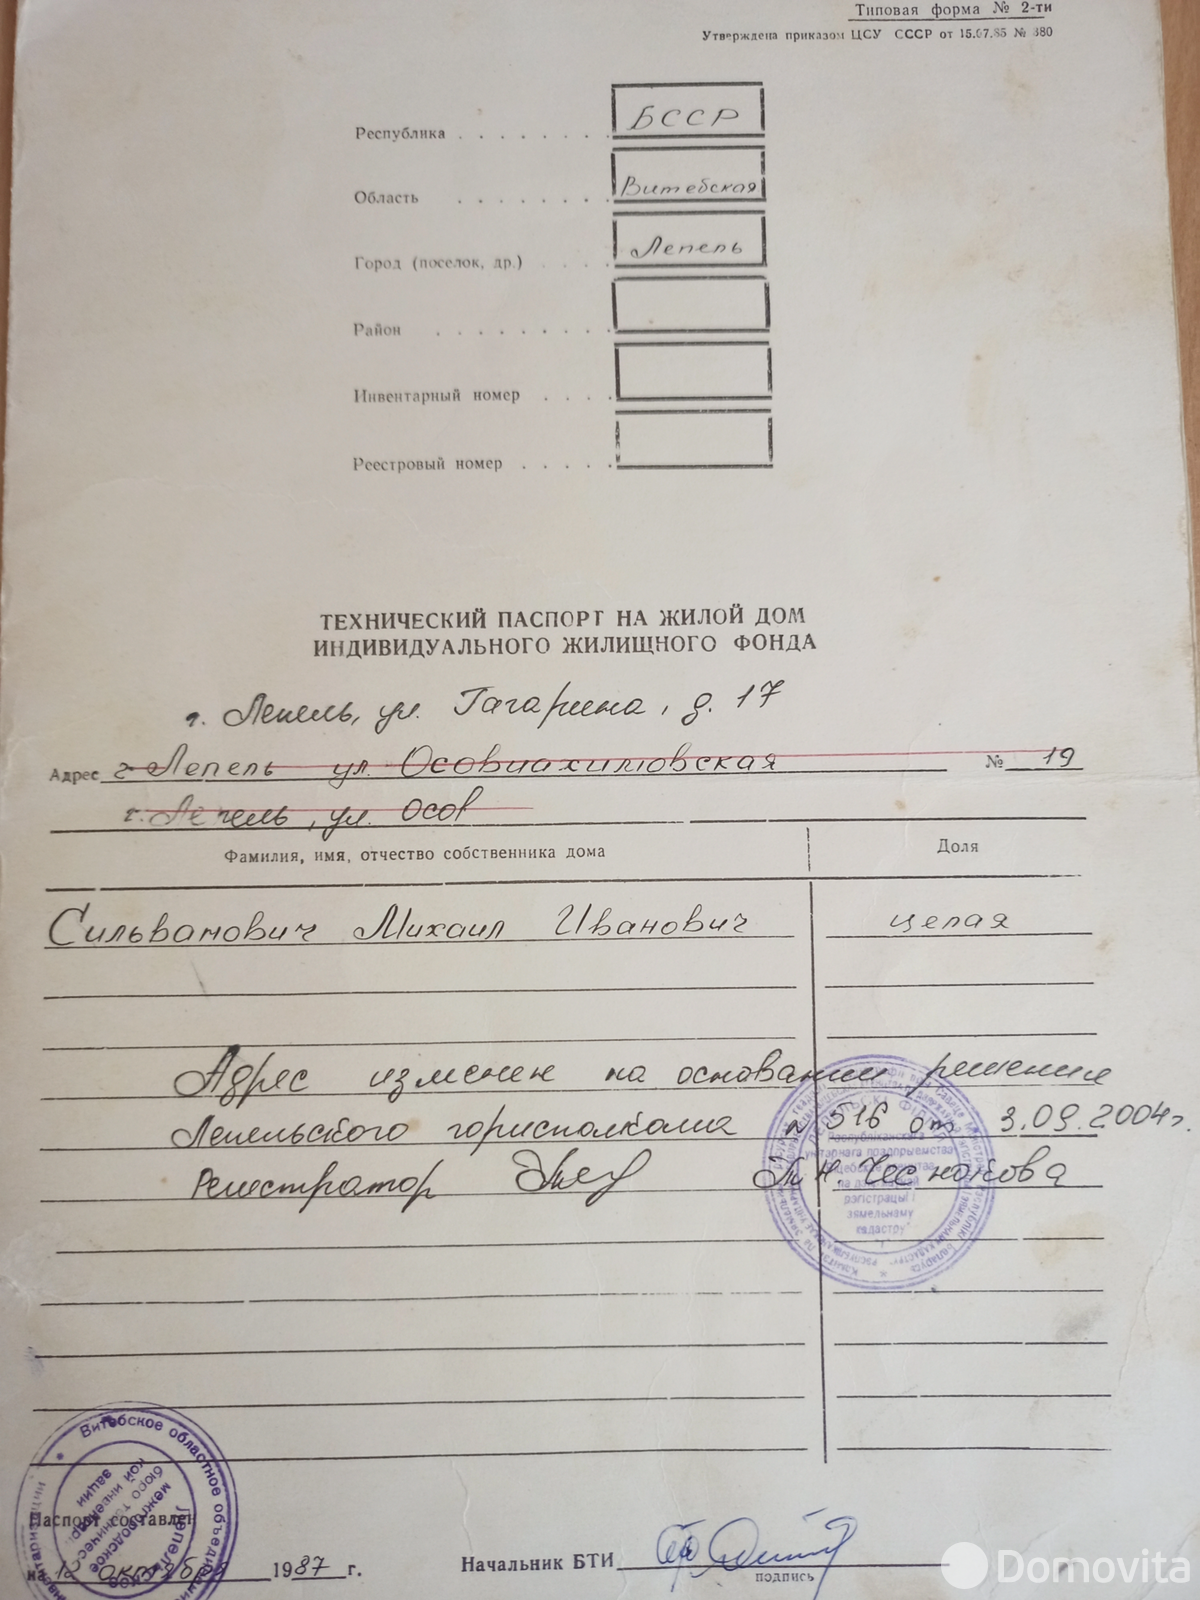 Типовая форма № 2-ти
Утверждена приказом ЦСУ СССР от 15.07.85 № 380
Республика . . . . . . . БССР
Область . . . . . . . Витебская
Город (поселок, др.) . . . . Лепель
Район . . . . . . . . .
Инвентарный номер . . . .
Реестровый номер . . . . .
ТЕХНИЧЕСКИЙ ПАСПОРТ НА ЖИЛОЙ ДОМ
ИНДИВИДУАЛЬНОГО ЖИЛИЩНОГО ФОНДА
г. Лепель, ул. Гагарина, д. 17
Адрес г. Лепель ул. Осовиахимовская № 19
г. Лепель, ул. Осов
Фамилия, имя, отчество собственника дома Доля
Сильванович Михаил Иванович целая
Адрес изменен на основании решения
Лепельского горисполкома № 516 от 3.09.2004г.
Регистратор Т.Н. Чеснокова
Рэспубліканскага
унітарнага прадпрыемства
рэгістрацыі і
зямельнаму
кадастру"
Витебское областное объединение
Лепельское
межгородское
бюро техничес-
кой инвентари-
зации
Паспорт составлен
на 12 октября 1987 г.
Начальник БТИ
подпись
Domovita